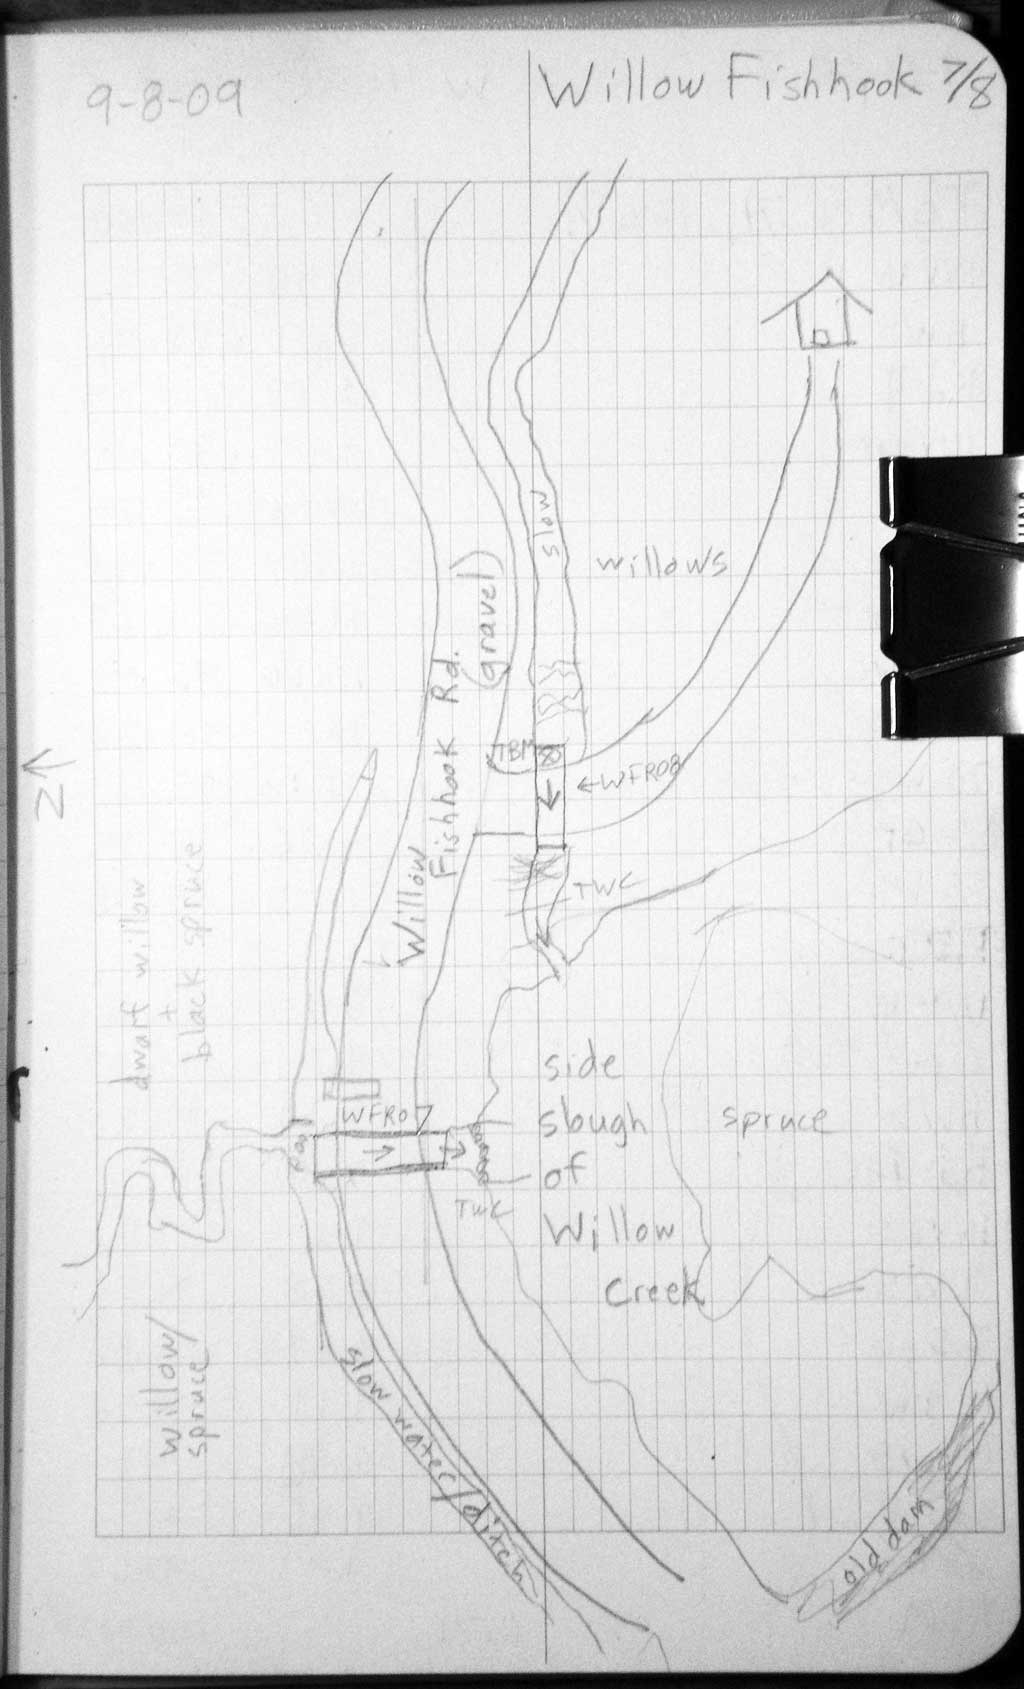 9-8-09
Willow Fishhook 7/8
slow
willows
Willow
Fishhook Rd.
(gravel)
TBM
←WFR08
TWC
N
dwarf willow
+
black spruce
WFR07
pool
TWC
side
slough
of
Willow
Creek
spruce
willow/
spruce
slow water/ditch
old dam